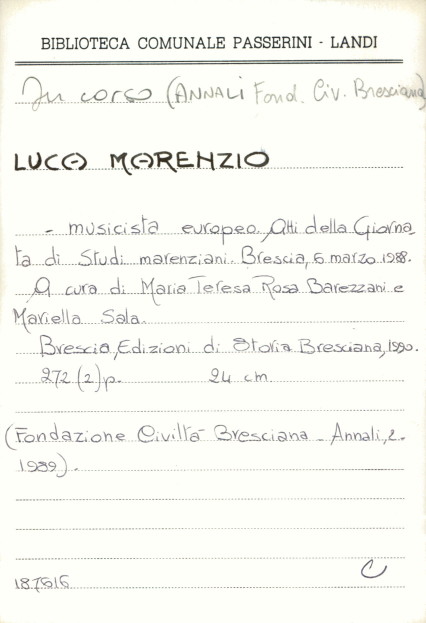 BIBLIOTECA COMUNALE PASSERINI - LANDI
In corso (ANNALI Fond. Civ. Bresciana)
LUCA MARENZIO
- musicista europeo. Atti della Giorna
ta di Studi marenziani. Brescia, 6 marzo 1988.
A cura di Maria Teresa Rosa Barezzani e
Mariella Sala.
Brescia, Edizioni di Storia Bresciana, 1990.
272 (2) p. 24 cm.
(Fondazione Civiltà Bresciana - Annali, 2-
1989).
C